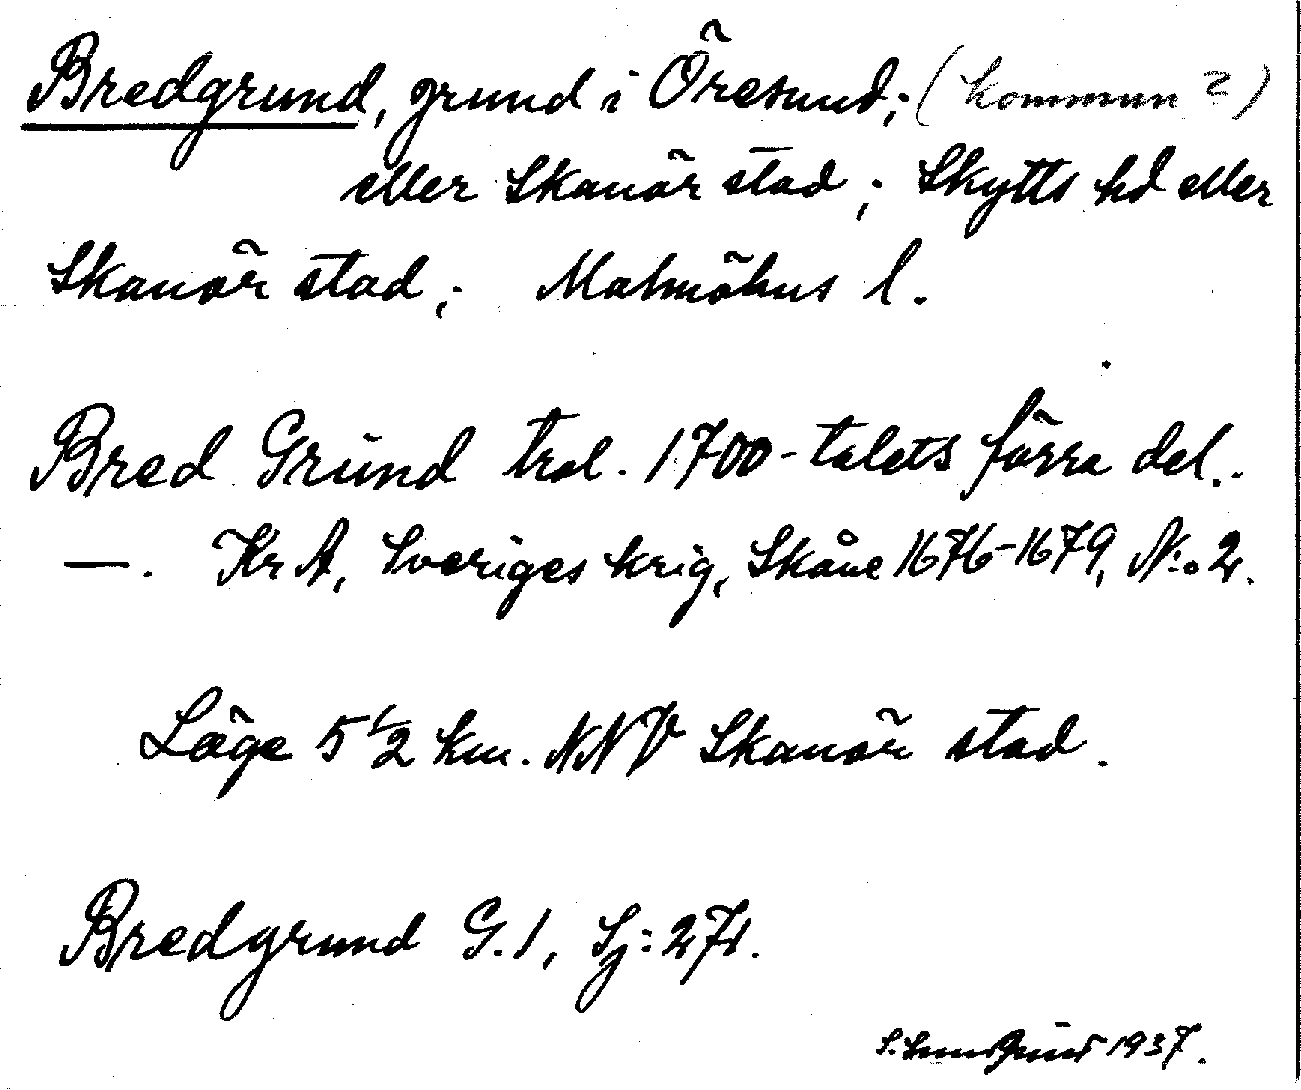 Bredgrund, grund i Öresund; (kommun?)
eller Skanör stad; Skytts hd eller
Skanör stad; Malmöhus l.
Bred Grund trol. 1700-talets förra del.
—. KrA, Sveriges krig, Skåne 1676-1679, N:o 2.
Läge 5 1/2 km. NNV Skanör stad.
Bredgrund G.1, Sj: 271.
1937.